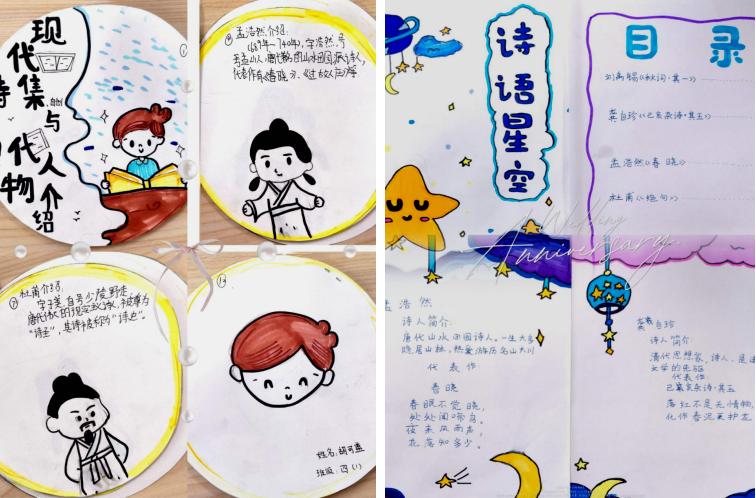 现代诗集与
古代人物介绍
⑧孟浩然介绍:
(689年~740年),字浩然,号
孟山人,唐代
代表作有《春晓》
⑨杜甫介绍:
字子美,自号少陵野老,
唐代伟大的现实主义诗人,被尊为
"诗圣",其诗被称为"诗史"。
姓名:胡可盈
班级:四(1)
诗语星空
目录
刘禹锡《秋词·其一》
龚自珍《己亥杂诗·其五》
孟浩然《春晓》
杜甫《绝句》
Wedding
Anniversary
孟浩然
诗人简介:
唐代山水田园诗人。一生大多
隐居山林,热爱游历名山大川
代表作
春晓
春眠不觉晓,
处处闻啼鸟。
夜来风雨声,
花落知多少。
龚自珍
诗人简介
清代思想家,诗人、
文学的先驱
代表作
己亥杂诗·其五
落红不是无情物,
化作春泥更护花